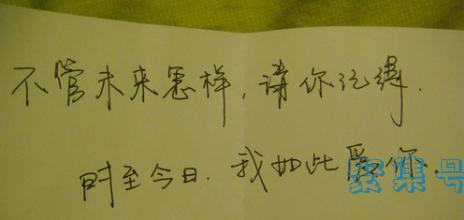 不管未来怎样，请你记得.
时至今日.我如此爱你.
聚集号